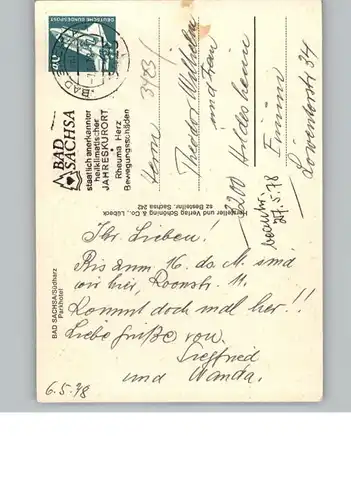 DEUTSCHE BUNDESPOST
BAD
SACHSA
staatlich anerkannter
heilklimatischer
JAHRESKURORT
Rheuma Herz
Bewegungsschäden
Herrn
Theodor Wilhelm
und Frau
3200 Hildesheim
Löwentorstr 34
27.5.78
Hersteller und Verlag Schöning & Co., Lübeck
sz Bestellnr. Sachsa 242
BAD SACHSA/Südharz
Parkhotel
Ihr Lieben!
Bis zum 16. ds. M. sind
wir hier, Roonstr. 11.
Kommt doch mal her!!
Liebe Grüße von
Siegfried
und Wanda.
6.5.78